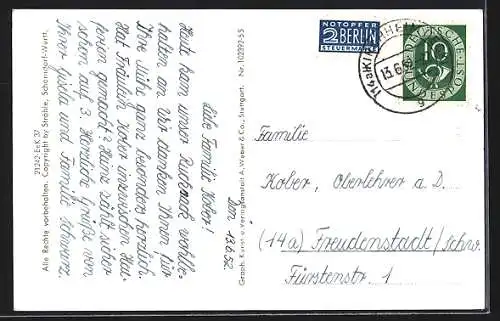 Den 13.6.52
Liebe Familie Kober!
Heute kam unser Rucksack wohlbe-
halten an. Wir danken Ihnen für
Ihre Mühe ganz besonders herzlich.
Hat Fräulein Kober inzwischen Hu-
ferien gemacht? Heinz zählt sicher
schon auf 3. Herzliche Grüße von
Ihrer Jutta und Familie Schwarz.
Alle Rechte vorbehalten. Copyright by Strähle, Schorndorf-Württ.
21242-E+K 37
Graph. Kunst- u. Verlagsanstalt A. Weber & Co., Stuttgart. Nr. 102392-55
NOTOPFER
2 BERLIN
STEUERMARKE
DEUTSCHE BUNDESPOST
10
(14a) KIRCHHEIM
13.6.52
g
Familie
Kober, Oberlehrer a. D.
(14a) Freudenstadt/Schw.
Fürstenstr. 1